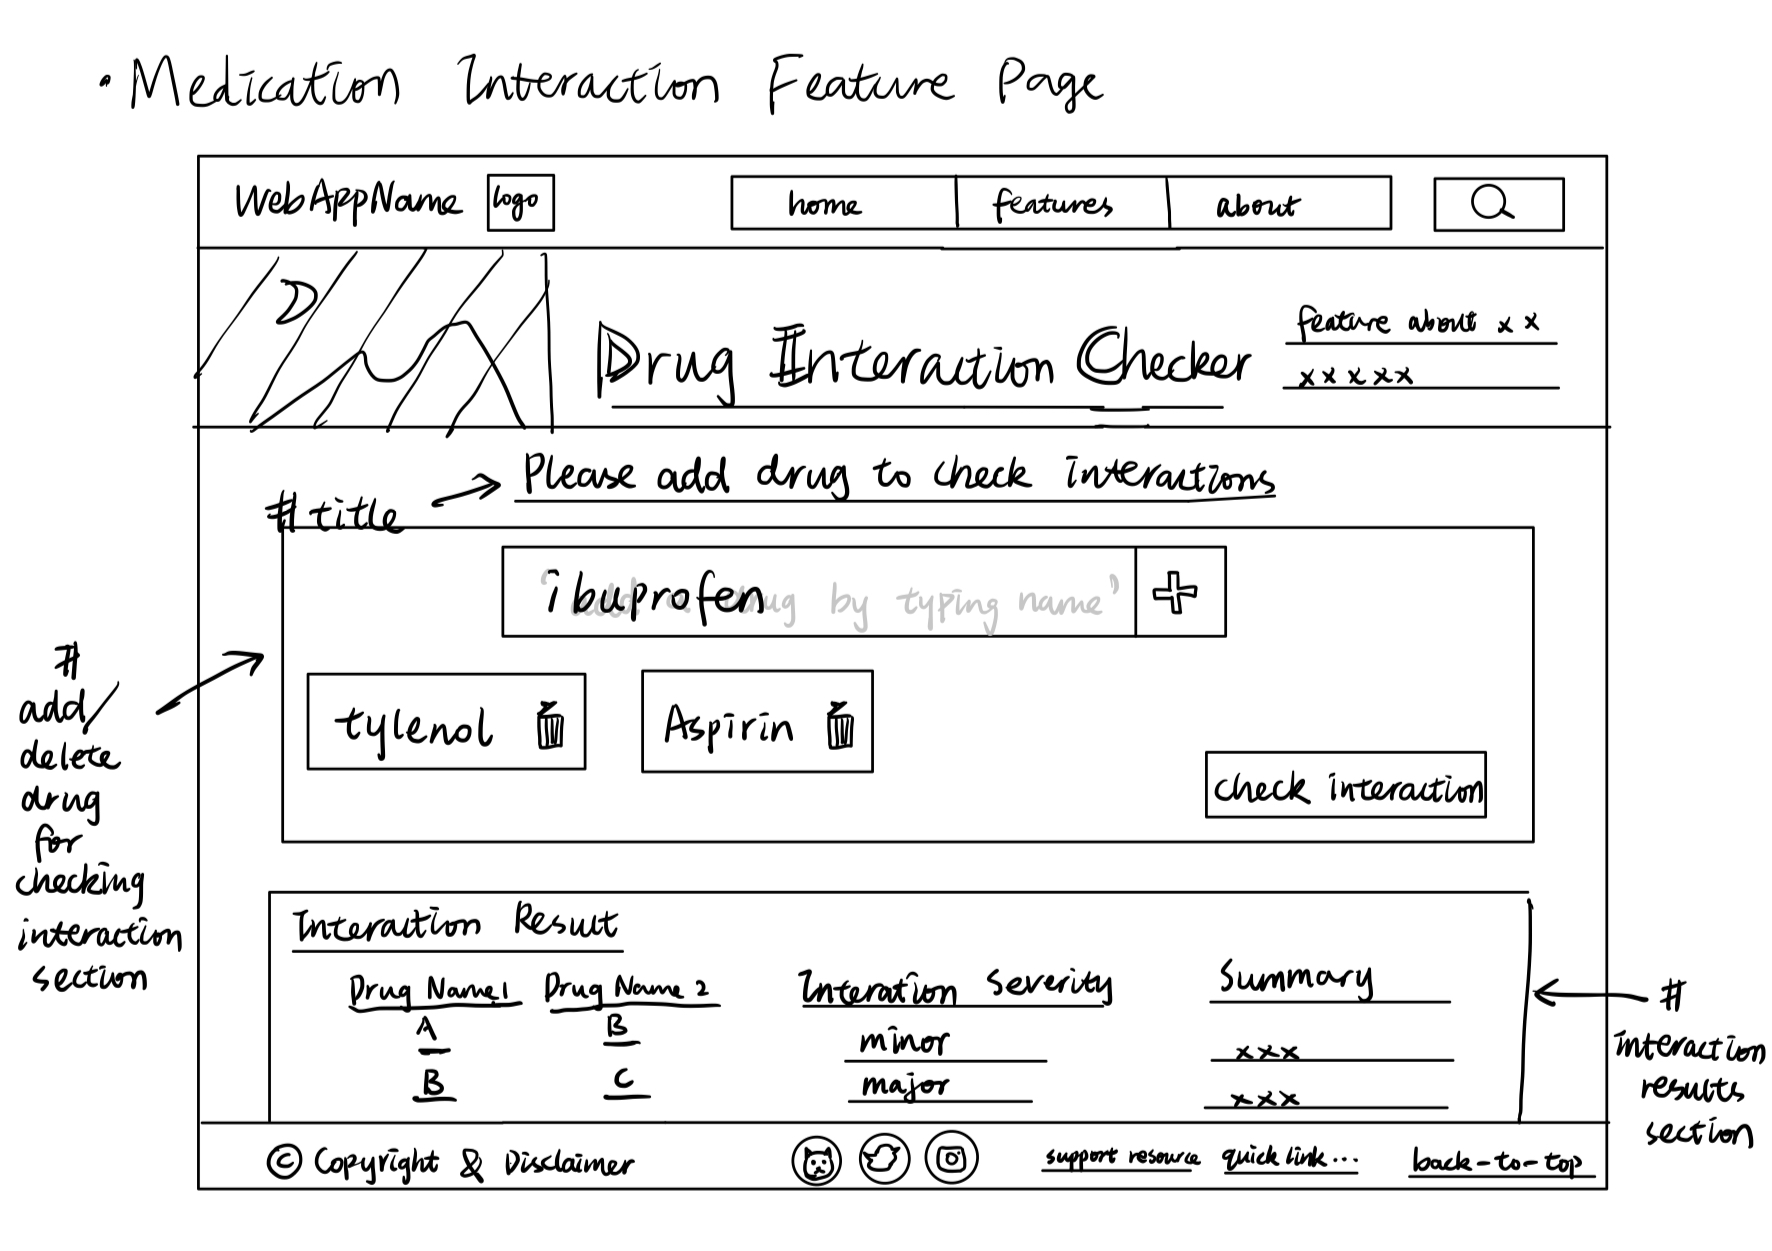 • Medication Interaction Feature Page
WebAppName logo home features about
Drug Interaction Checker
feature about x x
x x x x x
# title
Please add drug to check interactions
ibuprofen
drug by typing name"
+
tylenol
Aspirin
check interaction
#
add/
delete
drug
for
checking
interaction
section
Interaction Result
Drug Name1 Drug Name 2 Interation Severity Summary
A B minor xxx
B C major xxx
#
interaction
results
section
© Copyright & Disclaimer support resource quick link... back-to-top